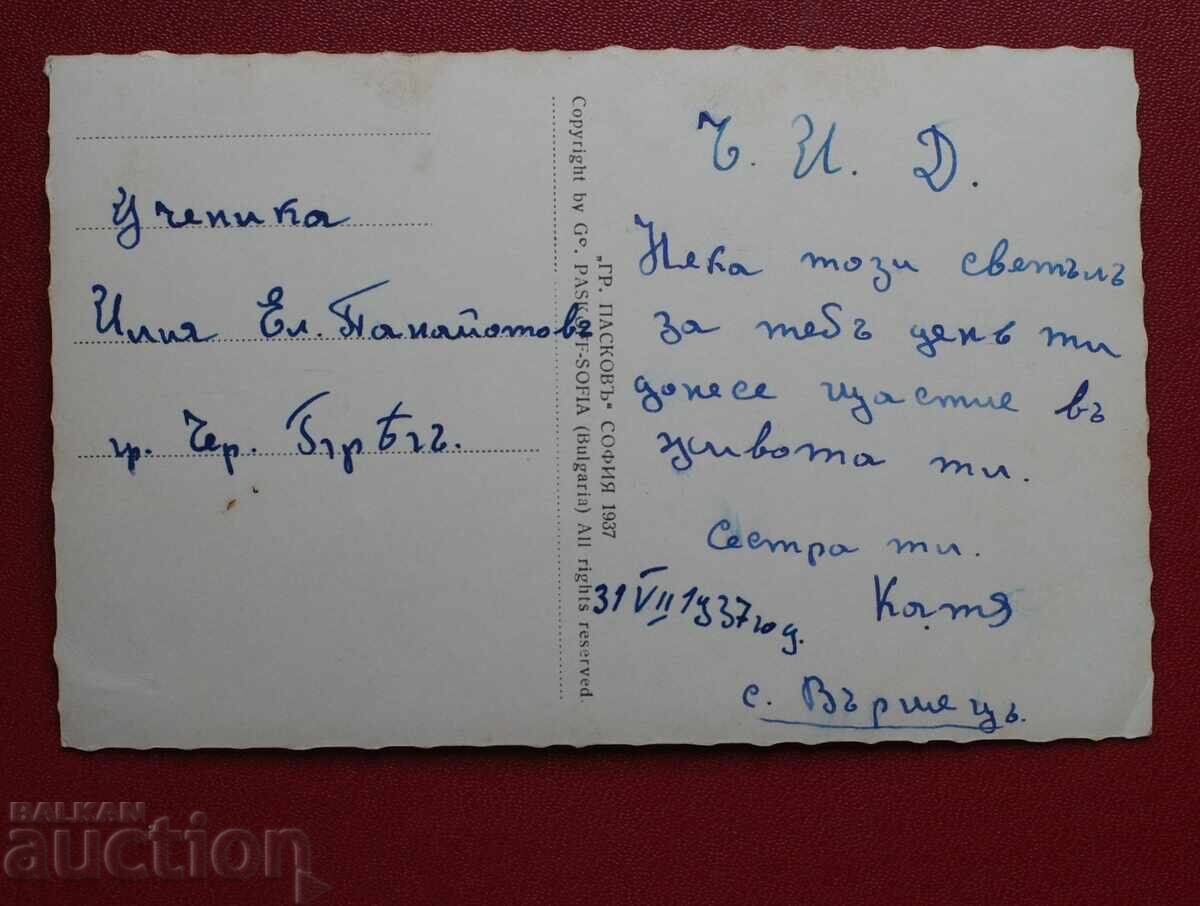 Ученика
Илия Ел. Панайотовъ
гр. Чер. Брѣгъ.
„ГР. ПАСКОВЪ“ СОФИЯ 1937
Copyright by Gr. PASKOFF-SOFIA (Bulgaria) All rights reserved.
Ч. И. Д.
Нека този светълъ
за тебъ день ти
донесе щастие въ
живота ти.
Сестра ти.
Катя
31 VII 1937 год.
с. Вършецъ.
BALKAN
auction